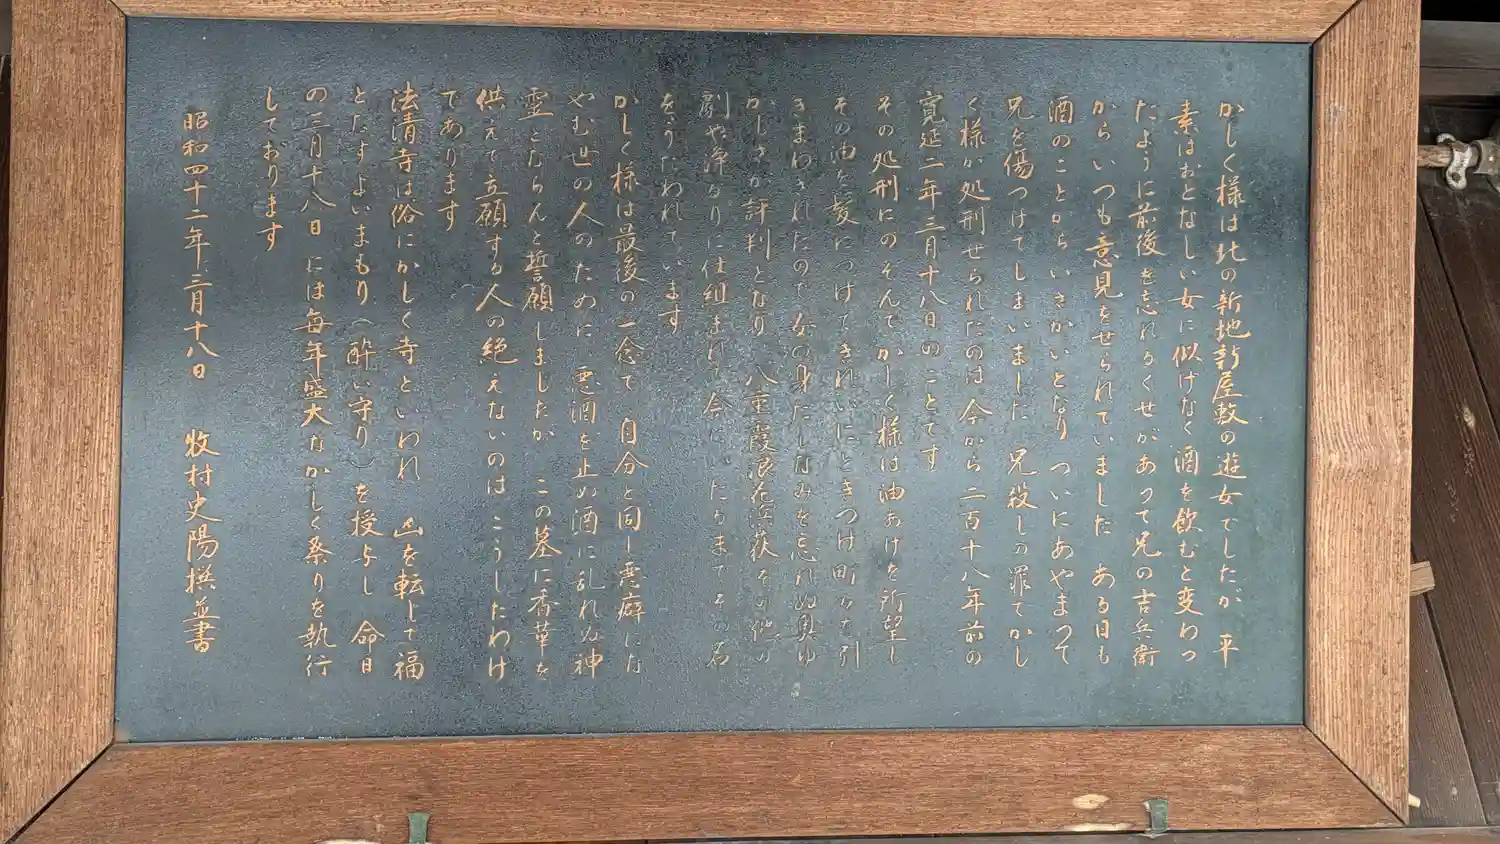 かしく様は北の新地新屋敷の遊女でしたが　平
素はおとなしい女に似げなく酒を飲むと変わっ
たように前後を忘れるくせがあって兄の吉兵衛
からいつも意見をせられていました　ある日も
酒のことからいさかいとなり　ついにあやまって
兄を傷つけてしまいました　兄殺しの罪でかし
く様が処刑せられたのは今から二百十八年前の
寛延二年三月十八日のことです
その処刑にのぞんで　かしく様は油あげを所望し
その油を髪につけてきれいにときつけ町々を引
きまわされたので女の身だしなみを忘れぬ奥ゆ
かしさが評判となり　八重霞浪花浜荻その他の
劇や浄るりに仕組まれて今にいたるまでその名
をうたわれています
かしく様は最後の一念で　自分と同し悪癖にな
やむ世の人のために　悪酒を止め酒に乱れぬ神
霊とならんと誓願しましたが　この墓に香華を
供えて立願する人の絶えないのは　こうしたわけ
であります
法清寺は俗にかしく寺といわれ　凶を転して福
とたすよいまもり（酔い守り）を授与し　命日
の三月十八日には毎年盛大なかしく祭りを執行
しております
昭和四十二年三月十八日　牧村史陽撰並書